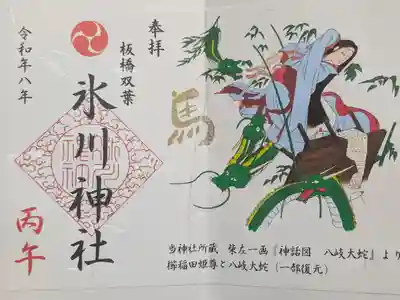 奉拝
板橋双葉
氷川神社
令和年八年
丙午
馬
当神社所蔵 柴左一画『神話図 八岐大蛇』より
櫛稲田姫尊と八岐大蛇(一部復元)